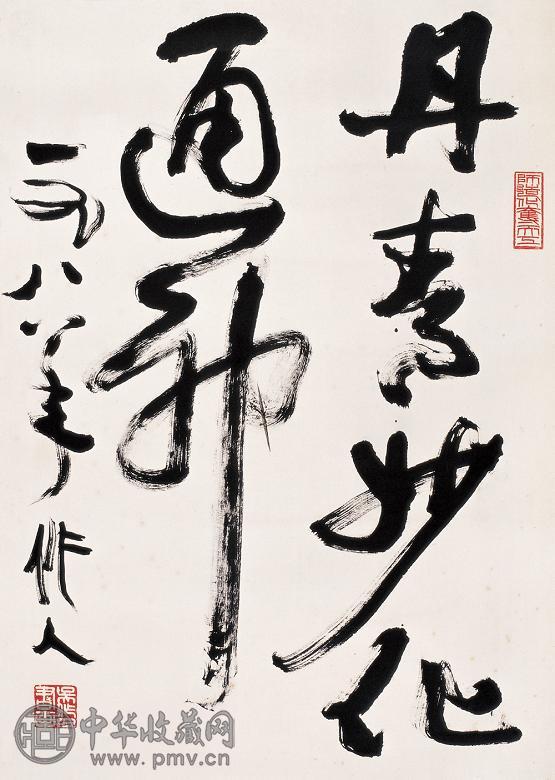 丹青妙化
通神
一九八八年 作人
中华收藏网
www.pmv.cn